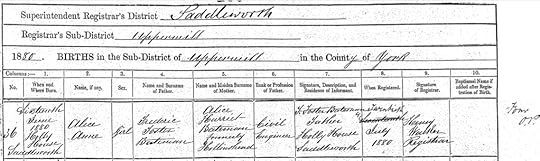 Superintendent Registrar's District Saddleworth
Registrar's Sub-District Uppermill
1880. BIRTHS in the Sub-District of Uppermill in the County of York
Columns:— 1. 2. 3. 4. 5. 6. 7. 8. 9. 10.
No. When and Where Born. Name, if any. Sex. Name and Surname of Father. Name and Maiden Surname of Mother. Rank or Profession of Father. Signature, Description, and Residence of Informant. When Registered. Signature of Registrar. Baptismal Name if added after Registration of Birth.
36
Sixteenth
June
1880
Holly
House
Saddleworth
Alice
Anne
Girl
Frederic
Foster
Bateman
Alice
Harriet
Bateman
formerly
Hollinshead
Civil
Engineer
F. Foster Bateman
Father
Holly House
Saddleworth
Twentieth
July
1880
Registrar